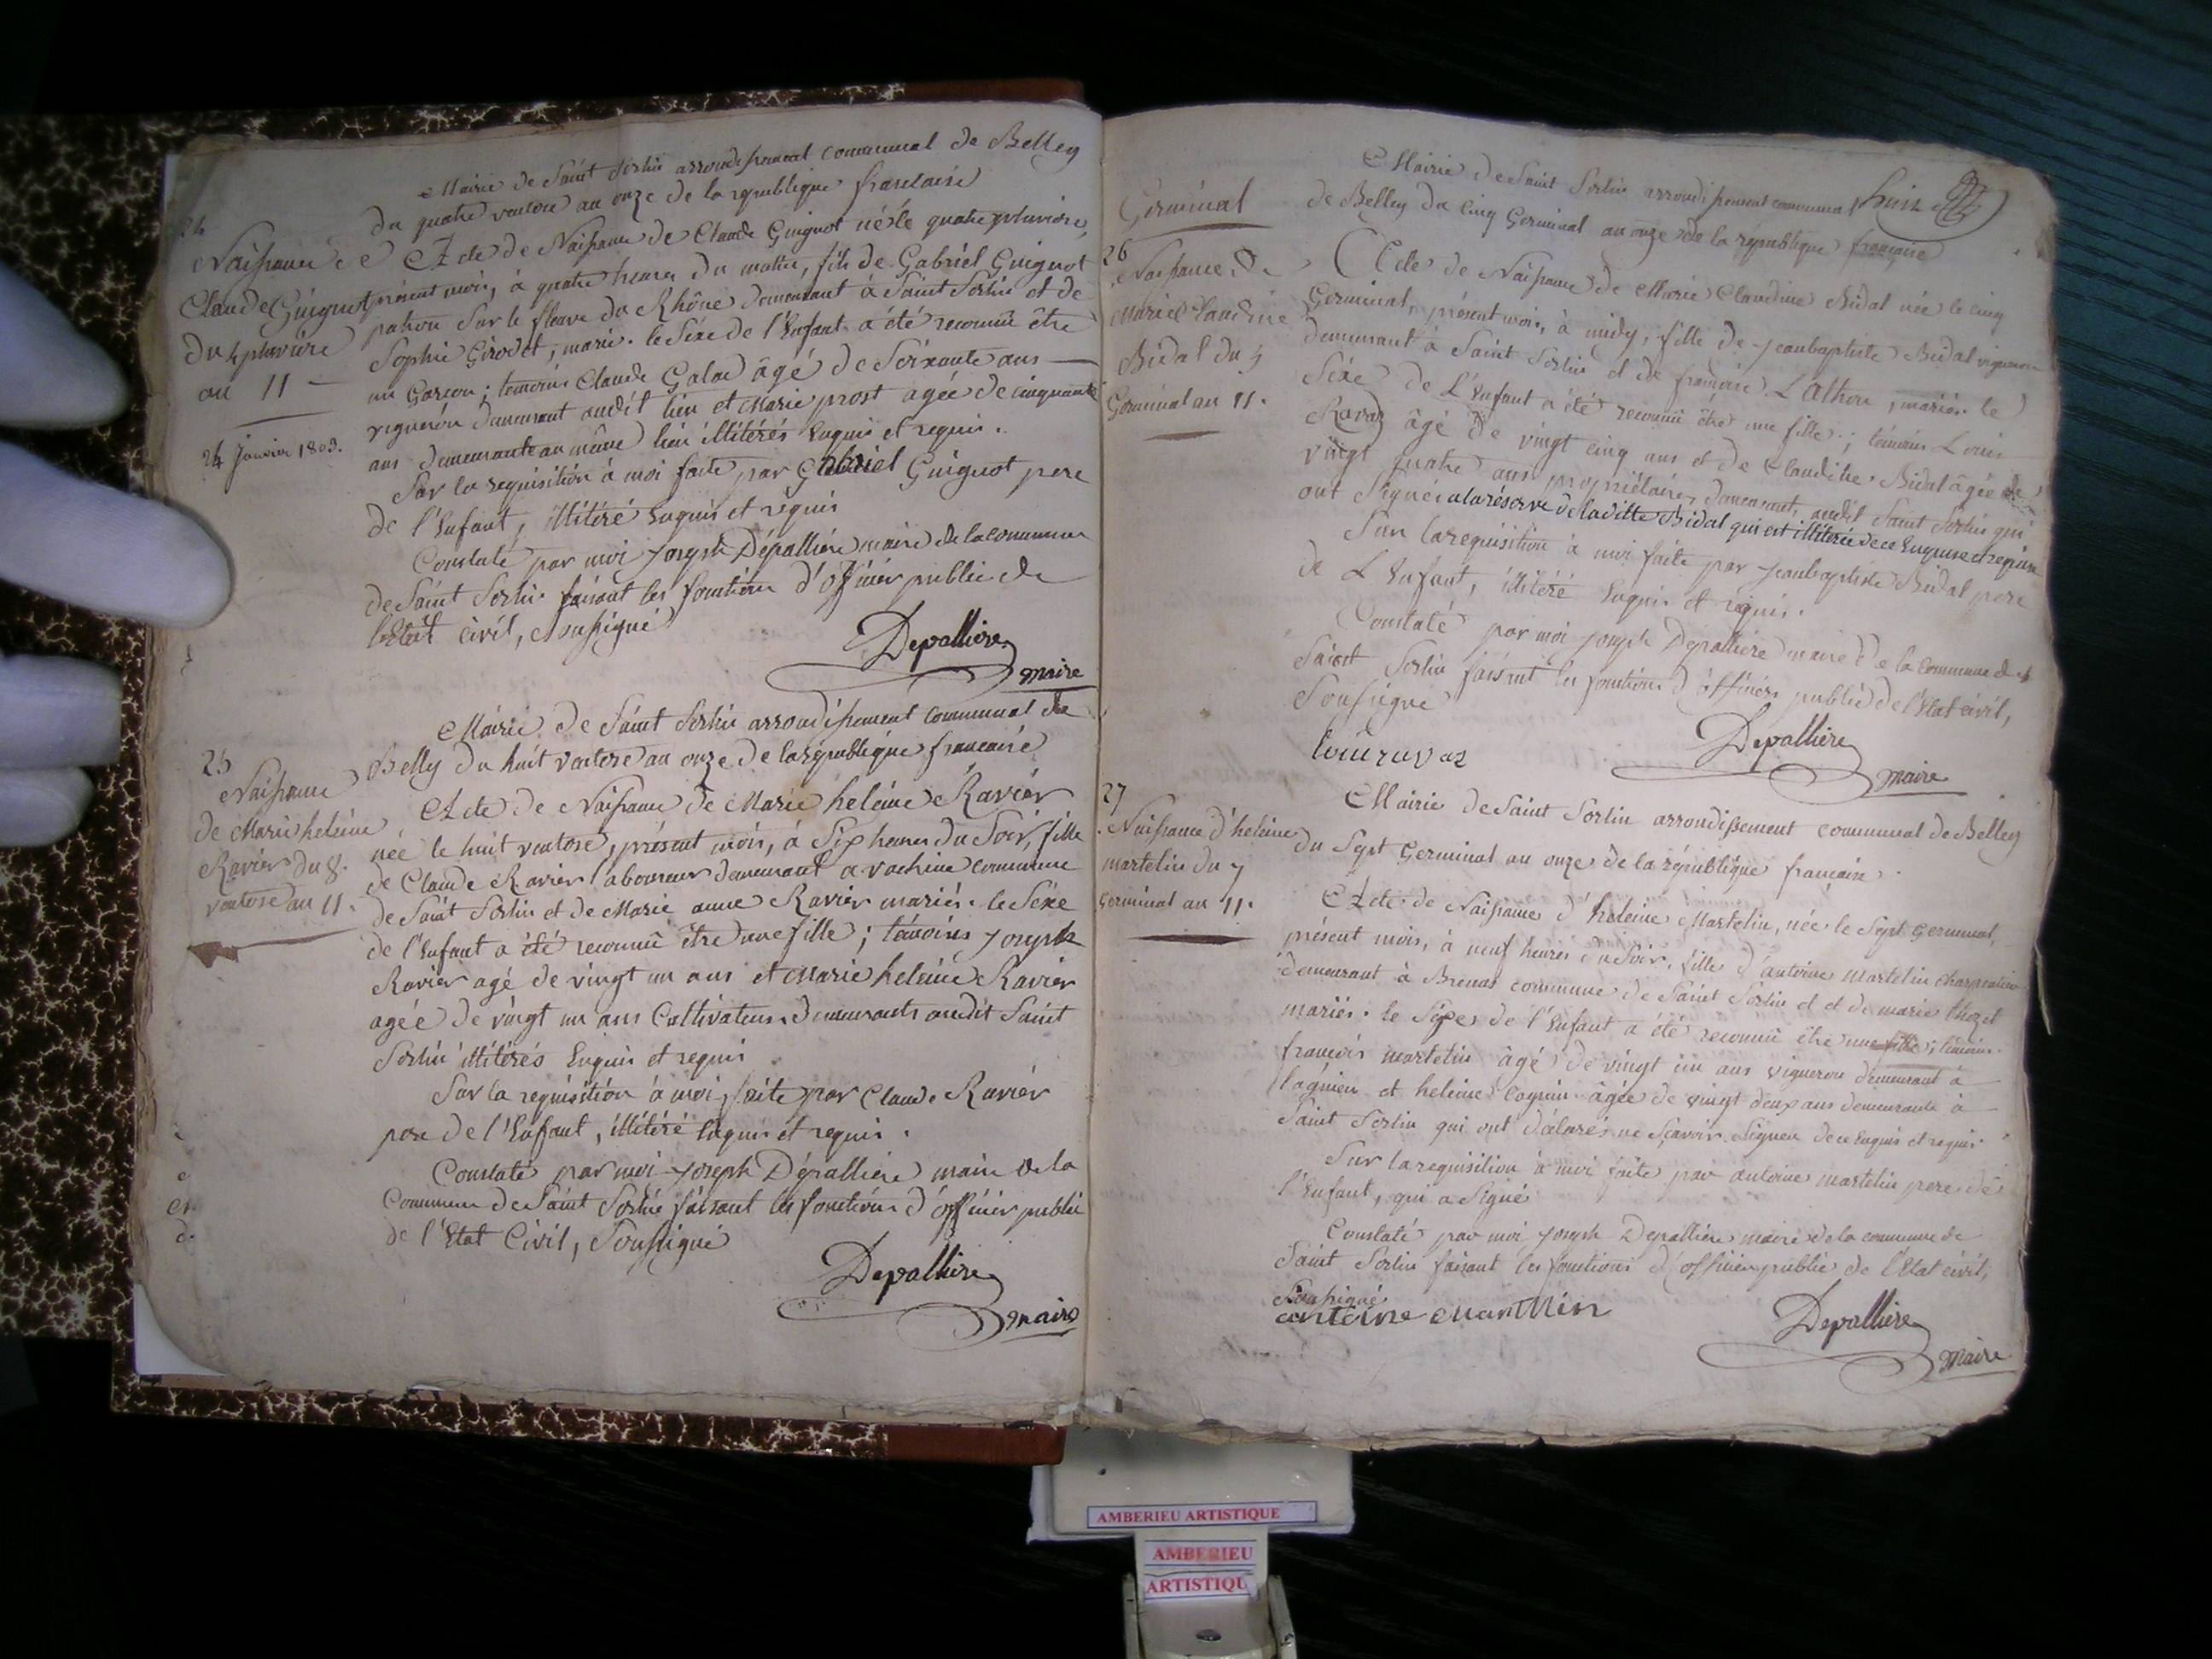 Mairie de Saint Sorlin arrondissement communal de Belley
du quatre ventose an onze de la republique francaise
24
Naissance de
Claude Guignot
du 4 pluviôse
an 11
24 janvier 1803.
Acte de Naissance de Claude Guignot né le quatre pluviôse,
présent mois, à quatre heures du matin, fils de Gabriel Guignot
patron sur le fleuve du Rhône demeurant à Saint Sorlin et de
Sophie Girodet, mariés. le Sexe de l'Enfant a été reconnu être
un Garçon; temoins Claude Galod âgé de Soixante ans
vigneron demeurant audit lieu et Marie prost agée de cinquante
ans demeurante au même lieu illitérés Enquis et requis.
Sur la requisition à moi faite par Gabriel Guignot pere
de l'Enfant, illitéré Enquis et requis
Constaté par moi Joseph Dépallière maire de la commune
de Saint Sorlin faisant les fonctions d'officier public de
l'Etat civil, soussigné
Depalliere
maire
Mairie de Saint Sorlin arrondissement communal de
Belley du huit ventose an onze de la république francaise
25
Naissance
de Marie heleine
Ravier du 8.
ventose an 11.
Acte de Naissance de Marie heleine Ravier
née le huit ventose, présent mois, à Six heures du Soir, fille
de Claude Ravier laboureur demeurant a vachine commune
de Saint Sorlin et de Marie anne Ravier mariés. le Sexe
de l'Enfant a été reconnu être une fille; témoins Joseph
Ravier agé de vingt un ans et Marie heleine Ravier
agée de vingt un ans Cultivateurs demeurants audit Saint
Sorlin illitérés Enquis et requis
Sur la requisition à moi faite par Claude Ravier
pere de l'Enfant, illitéré Enquis et requis.
Constaté par moi Joseph Dépallière maire de la
Commune de Saint Sorlin faisant les fonctions d'officier public
de l'Etat Civil, Soussigné
Depalliere
maire
huit
Mairie de Saint Sorlin arrondissement communal
de Belley du cinq Germinal an onze de la république française
Germinal
26
Naissance de
Marie Claudine
Bidal du 5
Germinal an 11.
Acte de Naissance de Marie Claudine Bidal née le cinq
Germinal, présent mois, à midy, fille de Jeanbaptiste Bidal vigneron
demeurant à Saint Sorlin et de françoise Lathou, mariés. le
Sexe de L'Enfant a été reconnu être une fille; témoins Louis
Ravaz âgé de vingt cinq ans et de Claudine Bidal âgée de
vingt quatre ans propriétaires demeurant audit Saint Sorlin qui
ont signés a la réserve de laditte Bidal qui est illitérée de ce Enquise et requise
Sur la requisition à moi faite par Jeanbaptiste Bidal pere
de L'Enfant, illitéré Enquis et requis.
Constaté par moi Joseph Depalliere maire de la commune de
Saint Sorlin faisant les fonctions d'officier public de l'Etat civil,
Soussigné
Louis ravaz
Depalliere
maire
Mairie de Saint Sorlin arrondissement communal de Belley
du Sept Germinal an onze de la république française
27
Naissance d'heleine
martelin du 7
germinal an 11.
Acte de Naissance d'heleine Martelin, née le Sept germinal,
présent mois, à neuf heures du Soir, fille d'antoine martelin charpentier
demeurant à Brenas commune de Saint Sorlin et et de marie thozet
mariés. le Sexe de l'Enfant a été reconnu être une fille; témoins
francois martelin âgé de vingt un ans vigneron demeurant à
lagnieu et heleine agée de vingt deux ans demeurante à
Saint Sorlin qui ont déclarés ne sçavoir Signer de ce Enquis et requis
Sur la requisition à moi faite par antoine martelin pere de
l'Enfant, qui a Signé
Constaté par moi Joseph Depalliere maire de la commune de
Saint Sorlin faisant les fonctions d'officier public de l'Etat civil,
Soussigné
antoine
Depalliere
maire
AMBERIEU ARTISTIQUE
AMBERIEU
ARTISTIQU